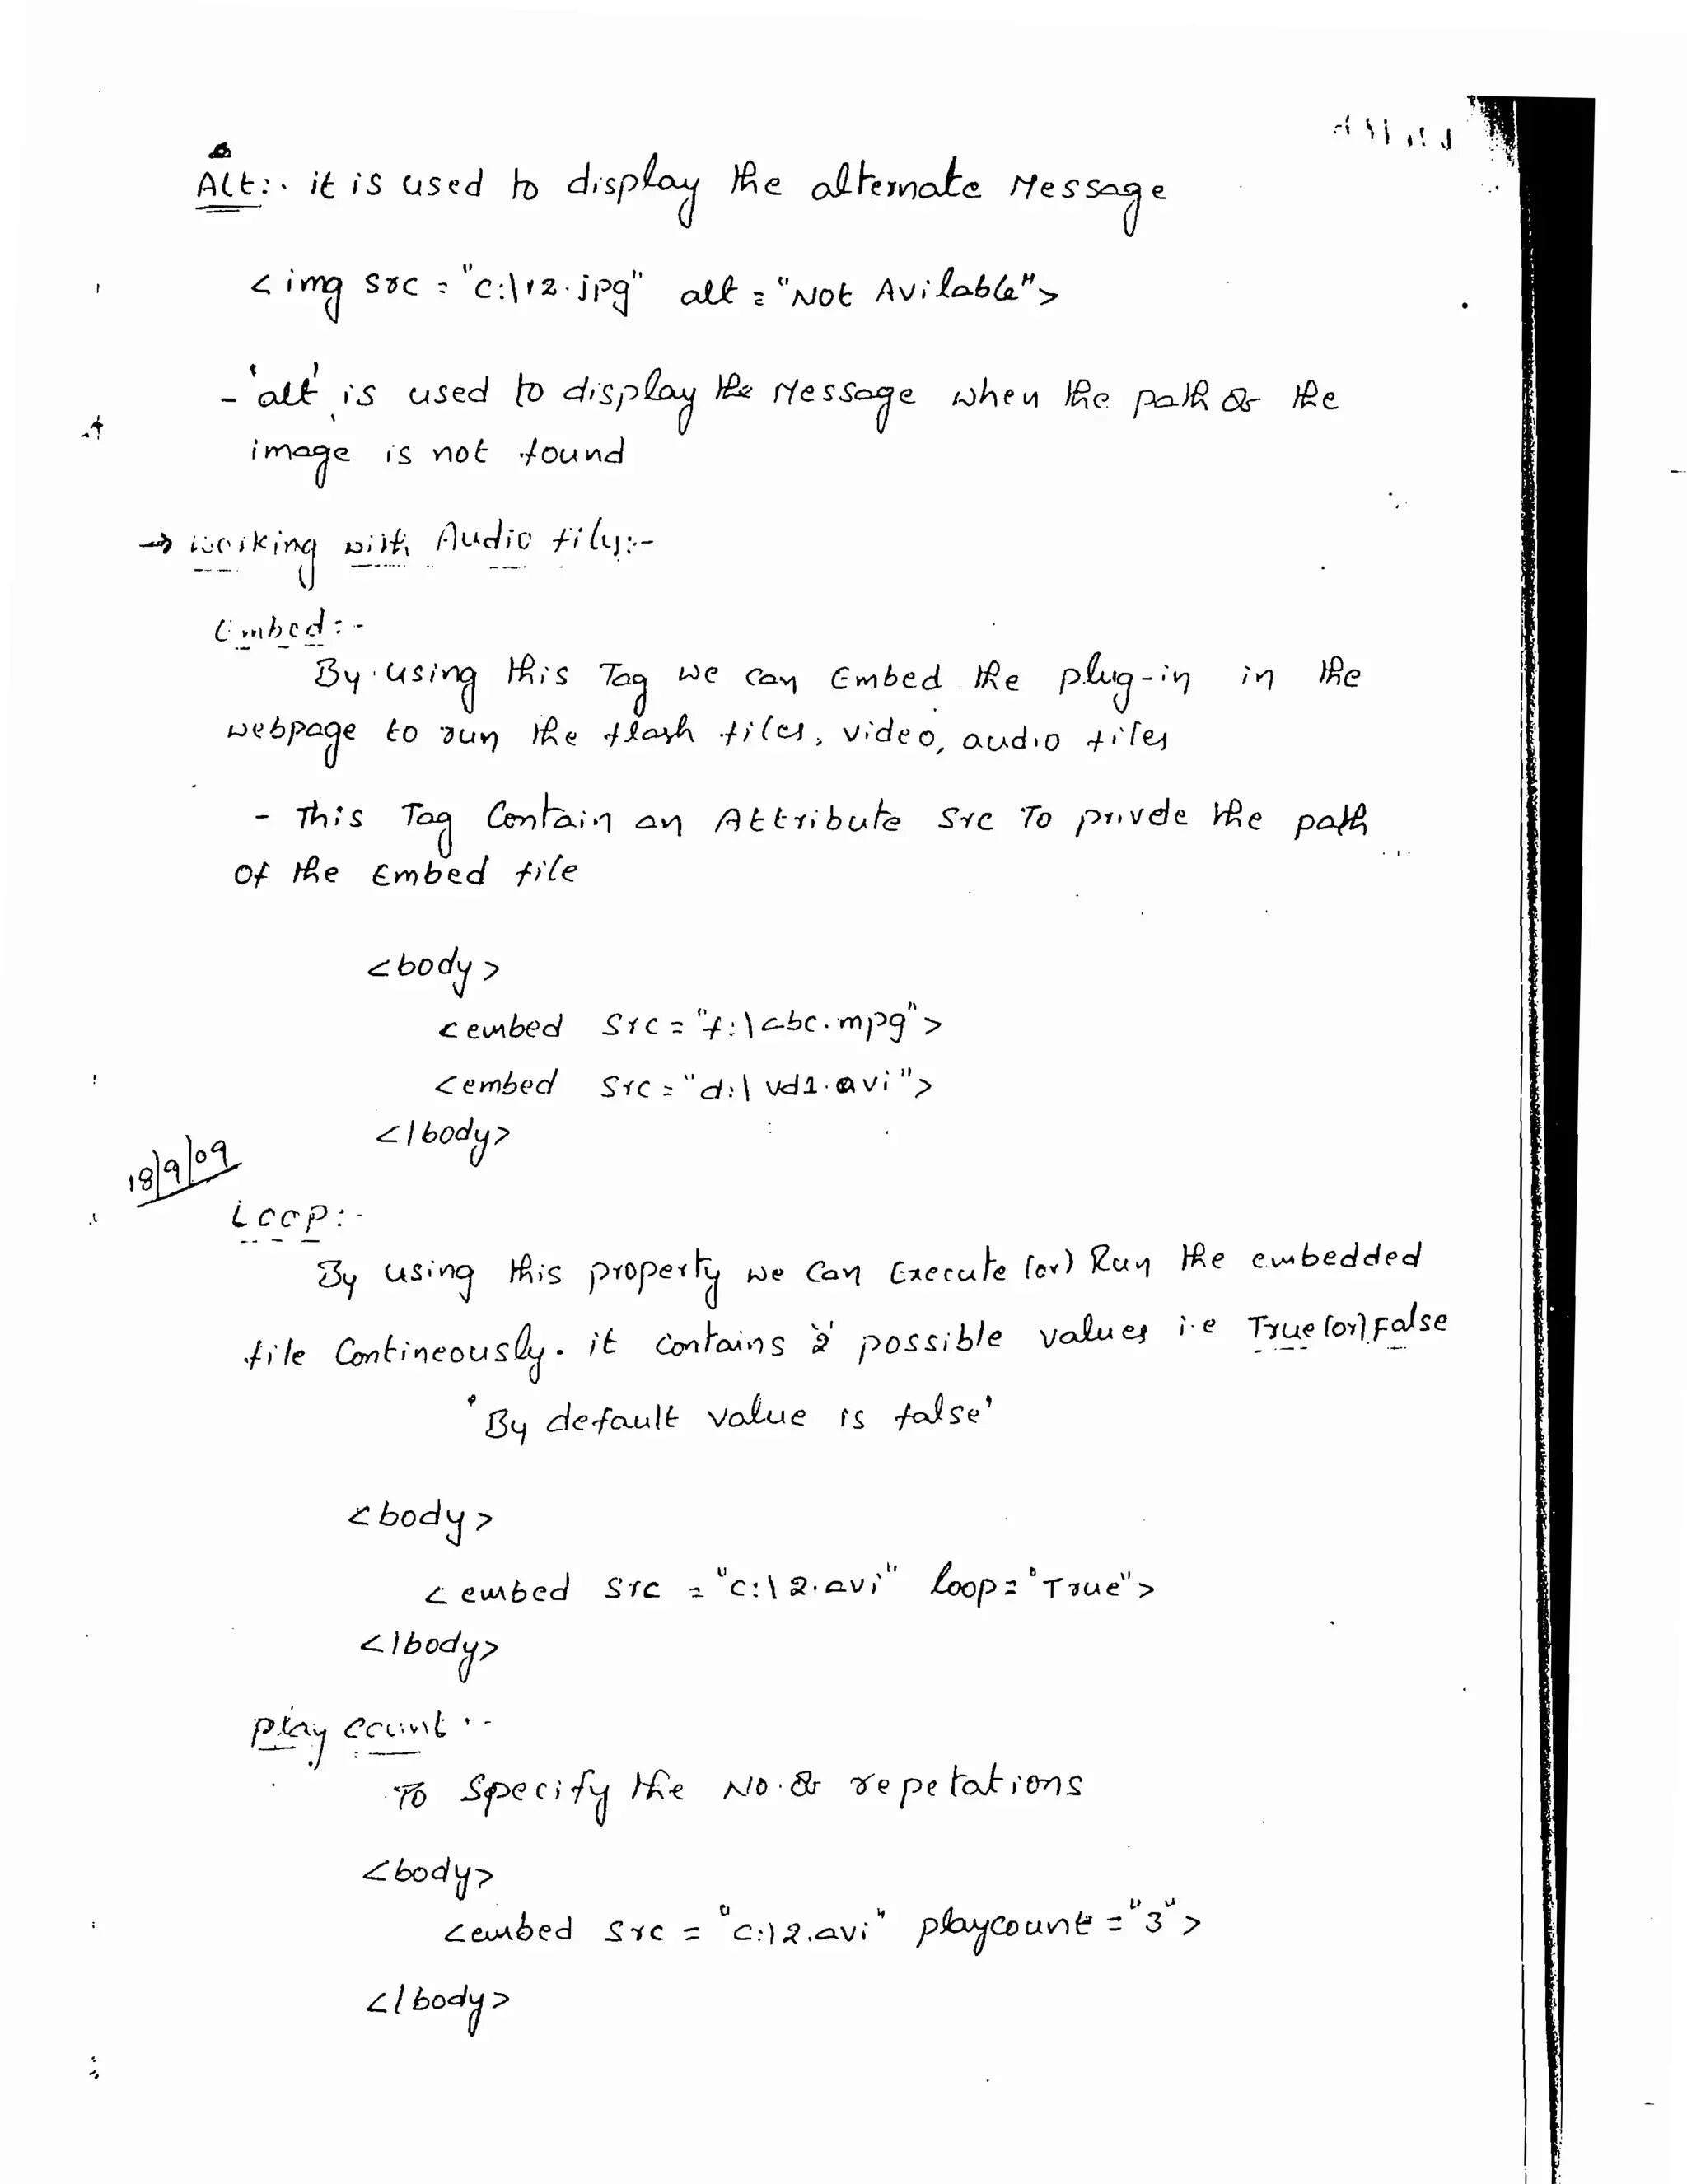 Alt:- it is used to display the alternate Message
<img src = "c:\12.jpg" alt = "Not Avilable">
- 'alt' is used to display the Message when the path of the
image is not found
→ working with Audio files:-
Embed:-
By using this Tag we can Embed the plug-in in the
webpage to run the flash files, video, audio files
- This Tag Contain an Attribute Src To privde the path
of the Embed file
<body>
<embed src = "f:\abc.mpg">
<embed src = "d:\ vd1.avi">
</body>
18/9/09
Loop:-
By using this property we can Execute (or) Run the embedded
file Contineously. it contains '2' possible values i.e True (or) False
'By default value is false'
<body>
<embed src = "c:\2.avi" loop = "True">
</body>
play count:-
To Specify the No. of repetations
<body>
<embed src = "c:\2.avi" playcount = "3">
</body>